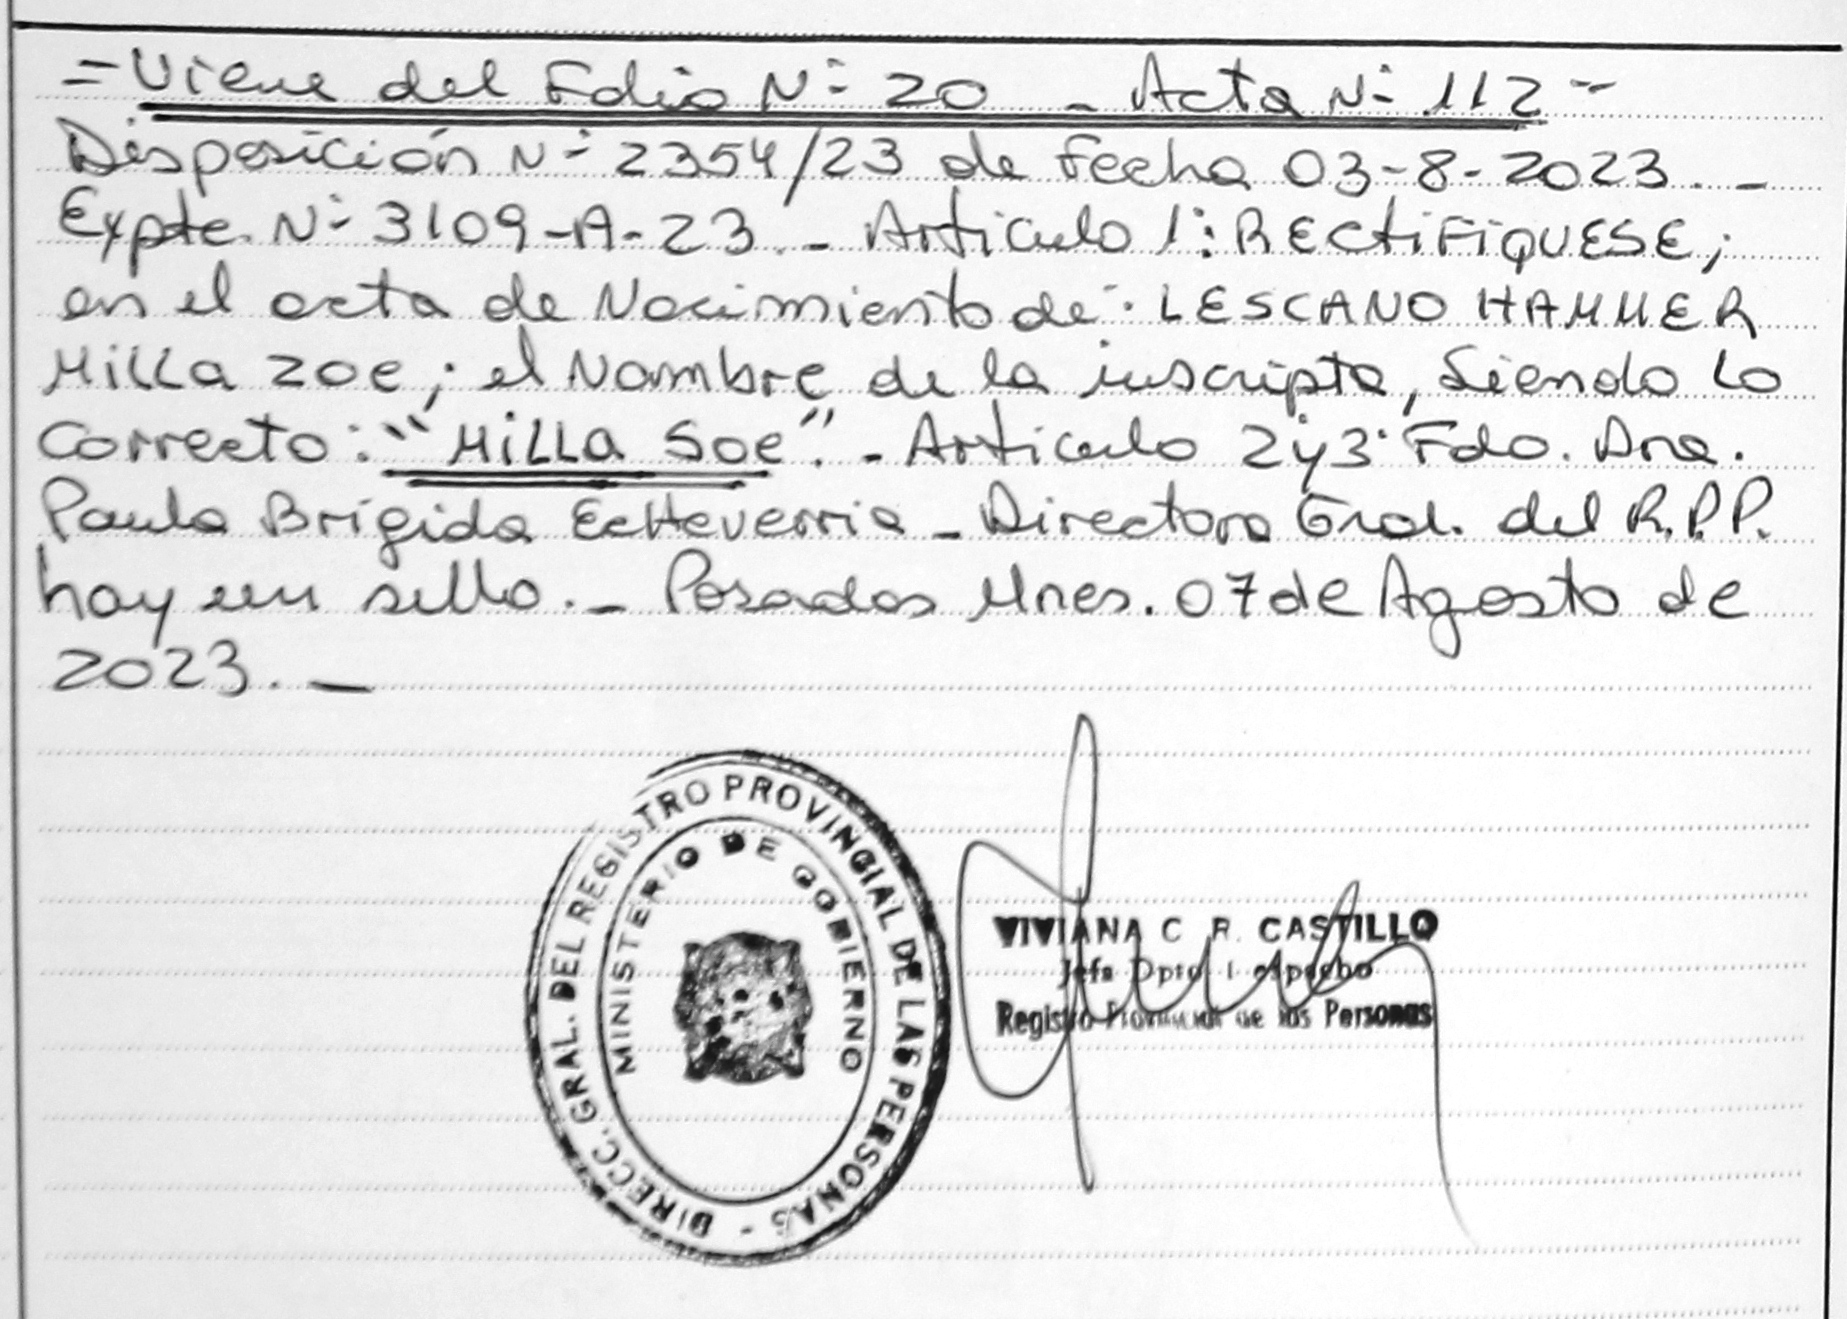 =Viene del Folio N- 20 - Acta N- 112-
Disposición N- 2354/23 de fecha 03-8-2023.-
Expte. N- 3109-A-23.- Articulo 1: RECtiFiQUESE;
en el acta de Nacimiento de: LESCANO HAMMER
Milla Zoe; el Nombre de la inscripta, Siendo Lo
Correcto: "MiLLa Soe".- Articulo 2y3 Fdo. Dra.
Paula Brígida Echeverria - Directora Gral. del R.P.P.
hay un sello.- Posadas Mnes. 07 de Agosto de
2023.-
DIRECC. GRAL. DEL REGISTRO PROVINCIAL DE LAS PERSONAS -
MINISTERIO DE GOBIERNO
VIVIANA C. R. CASTILLO
Jefa Dpto.
Registro Provincial de las Personas